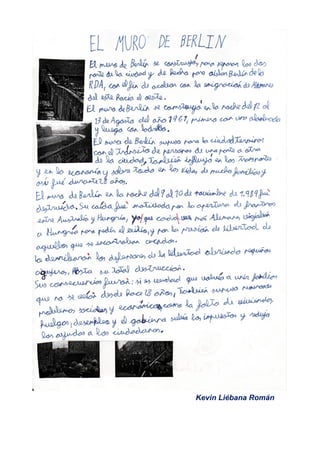 EL MURO DE BERLIN
El muro de Berlín se construyó para separar las dos
parte de la ciudad y de hecho para aislar Berlín de la
RDA, con el fin de acabar con la emigración de Alemanes
del este hacia el oeste.
El muro de Berlín se construyó en la noche del 12 al
13 de Agosto del año 1961, primero con una alambrada
y luego con ladrillos.
El muro de Berlín supuso para la ciudad Terminar
con el Tránsito de personas de una parte a otra
de la ciudad, También influyó en los Transportes
y en la economía y sobre Todo en las vidas de muchas familias y
así fué durante 28 años.
El muro de Berlín en la noche del 9 al 10 de noviembre de 1989 fué
destruido. Su caída fué motivada por la apertura de fronteras
entre Australia y Hungría, ya que cada vez mas Alemanes viajaban
a Hungría para pedir el exilio, y por la presión de libertad de
aquellos que se encontraban cercados.
lo demilitaron los defensores de la libertad abriendo pequeños
agujeros, hasta su total destrucción.
Sus consecuencias fueron: si es verdad que volvió a unir familias
que no se veían desde hace 28 años, También supuso numerosos
problemas sociales y económicos como la falta de viviendas,
huelgas, desempleo y el gobierno subía los impuestos y rebaja
las ayudas a los ciudadanos.
Kevin Liébana Román